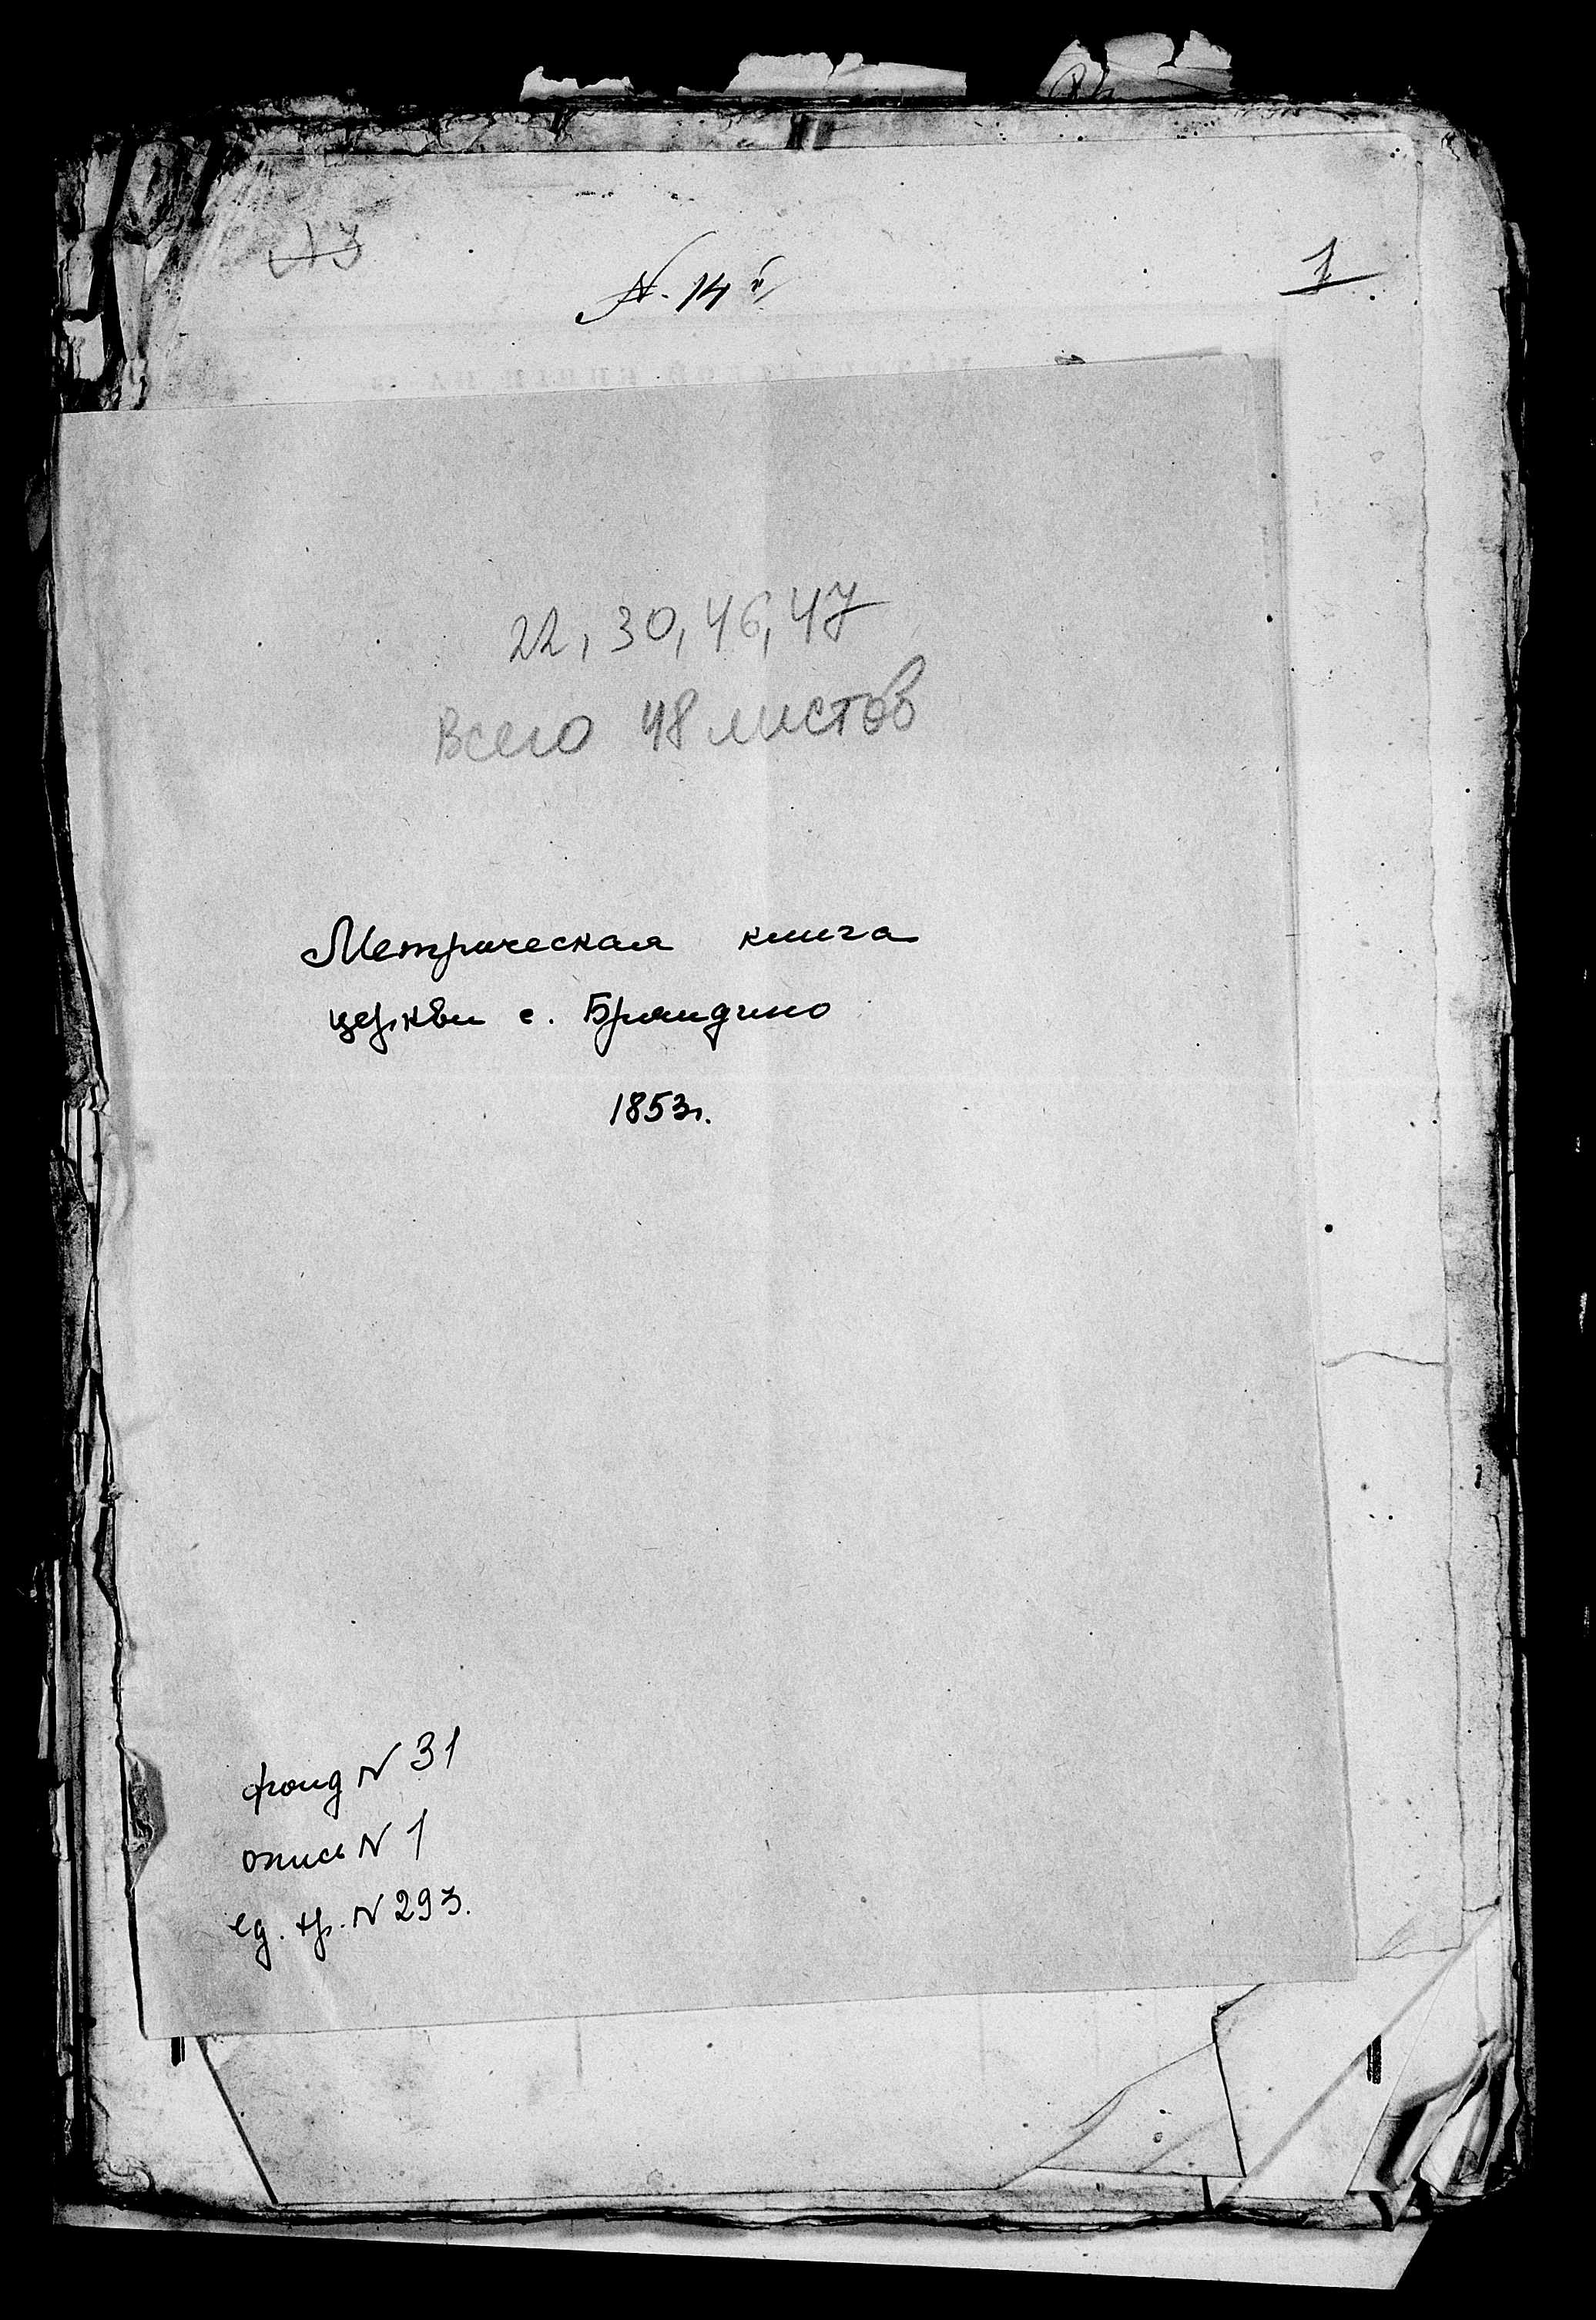 N. 14й
1
22, 30, 46, 47
Всего 48 листов
Метрическая книга
церкви с. Бряндино
1853г.
фонд N 31
опись N 1
ед. хр. N 293.